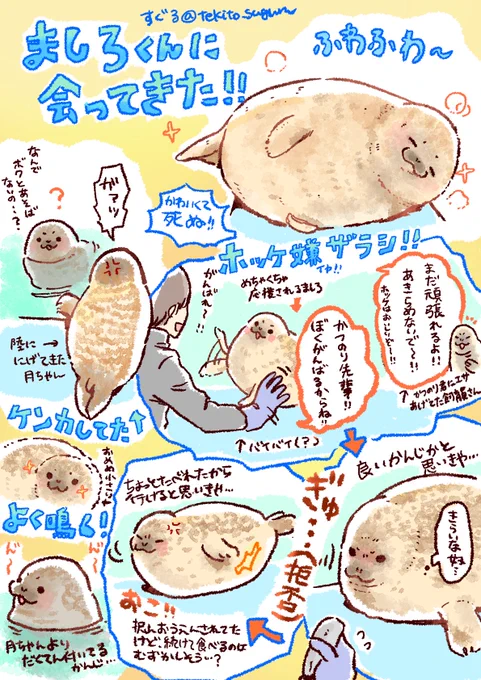 すぐる@tekito_suguru
ましろくんに
会ってきた!!
ふわふわ〜
なんで
ボクとあそば
ないの・・?
?
ガァッ
かわいくて
死ぬ!!
陸に→
にげてきた
月ちゃん
ケンカしてた↑
ホッケ嫌ザラシ!!
がんばれ〜!!
めちゃくちゃ
応援されるましろ
かつのり先輩!!
ぼくがんばるからね!!
まだ頑張れるよ!!
あきらめないで〜!!
ホッケはおいしいぞ〜!!
↑かつのり君にエサ
あげとった飼育員さん
↑バイバイ(?)
おめめ小さい
よく鳴く!
ん゛〜
ん゛〜
月ちゃんより
だくてん付いてる
かんじ…
ちょっとたべれたから
行けると思いきや…
おこ!!
沢山おうえんされてた
けど、続けて食べるのは
むずかしそう…?
ぎゅ…(拒否)
良いかんじかと
思いきや…
きらいな奴…